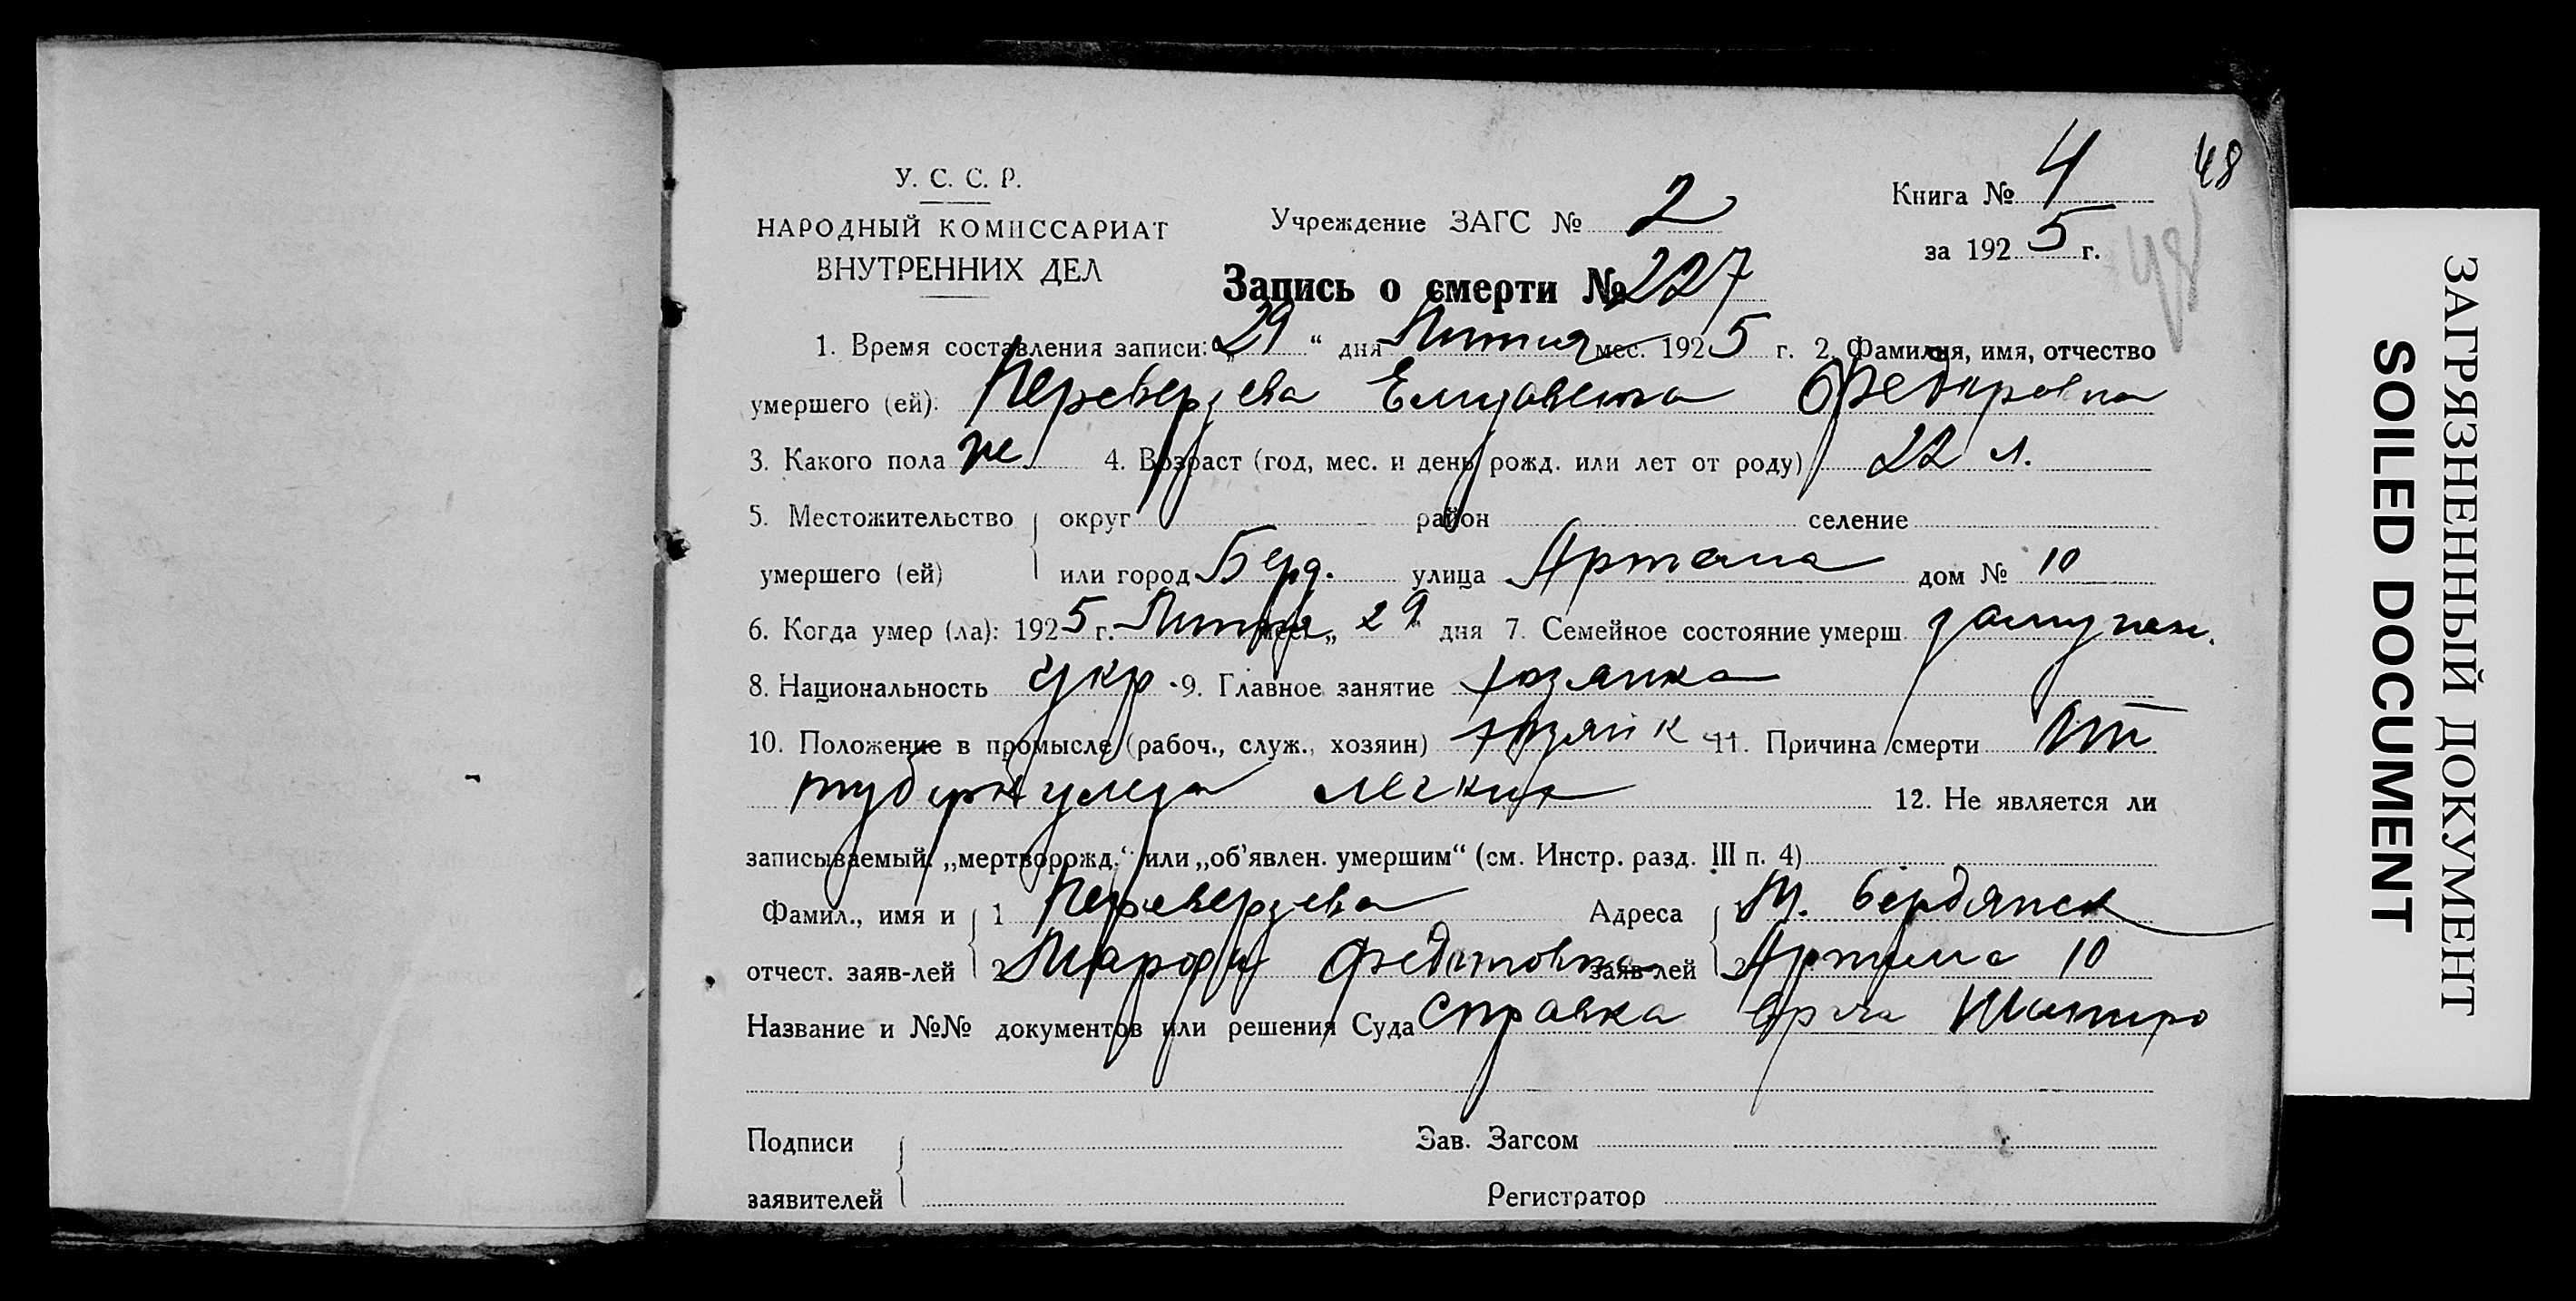 48
У. С. С. Р.
НАРОДНЫЙ КОМИССАРИАТ
ВНУТРЕННИХ ДЕЛ
Учреждение ЗАГС № 2
Книга № 4
за 1925 г.
48
Запись о смерти № 227
1. Время составления записи: „29“ дня мес. 1925 г. 2. Фамилия, имя, отчество
умершего (ей): Переверзева Елизавета Федоровна
3. Какого пола ж 4. Возраст (год, мес. и день рожд. или лет от роду) 22 л.
5. Местожительство округ район селение
умершего (ей) или город Берд. улица Артема дом № 10
6. Когда умер (ла): 1925 г. мес. „29“ дня 7. Семейное состояние умерш. замужем.
8. Национальность укр 9. Главное занятие хозяйка
10. Положение в промысле (рабоч., служ., хозяин) хозяйк 11. Причина смерти От
туберкулеза легких 12. Не является ли
записываемый „мертворожд.“ или „об’явлен. умершим“ (см. Инстр. разд. III п. 4)
Фамил., имя и 1 Переверзева Адреса М. Бердянск
отчест. заяв-лей 2 заяв-лей 2 Артема 10
Название и №№ документов или решения Суда Справка врача Шапиро
Подписи Зав. Загсом
заявителей Регистратор
ЗАГРЯЗНЕННЫЙ ДОКУМЕНТ
SOILED DOCUMENT